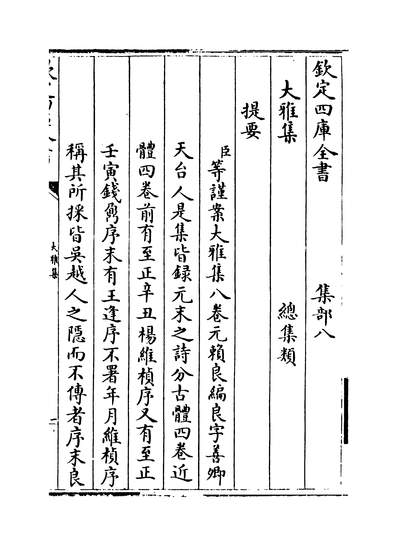 欽定四庫全書　集部八
大雅集　總集類
提要
臣等謹案大雅集八卷元賴良編良字善卿
天台人是集皆録元末之詩分古體四卷近
體四卷前有至正辛丑楊維楨序又有至正
壬寅錢鼒序末有王逢序不署年月維楨序
稱其所採皆吳越人之隱而不傳者序末良
大雅集